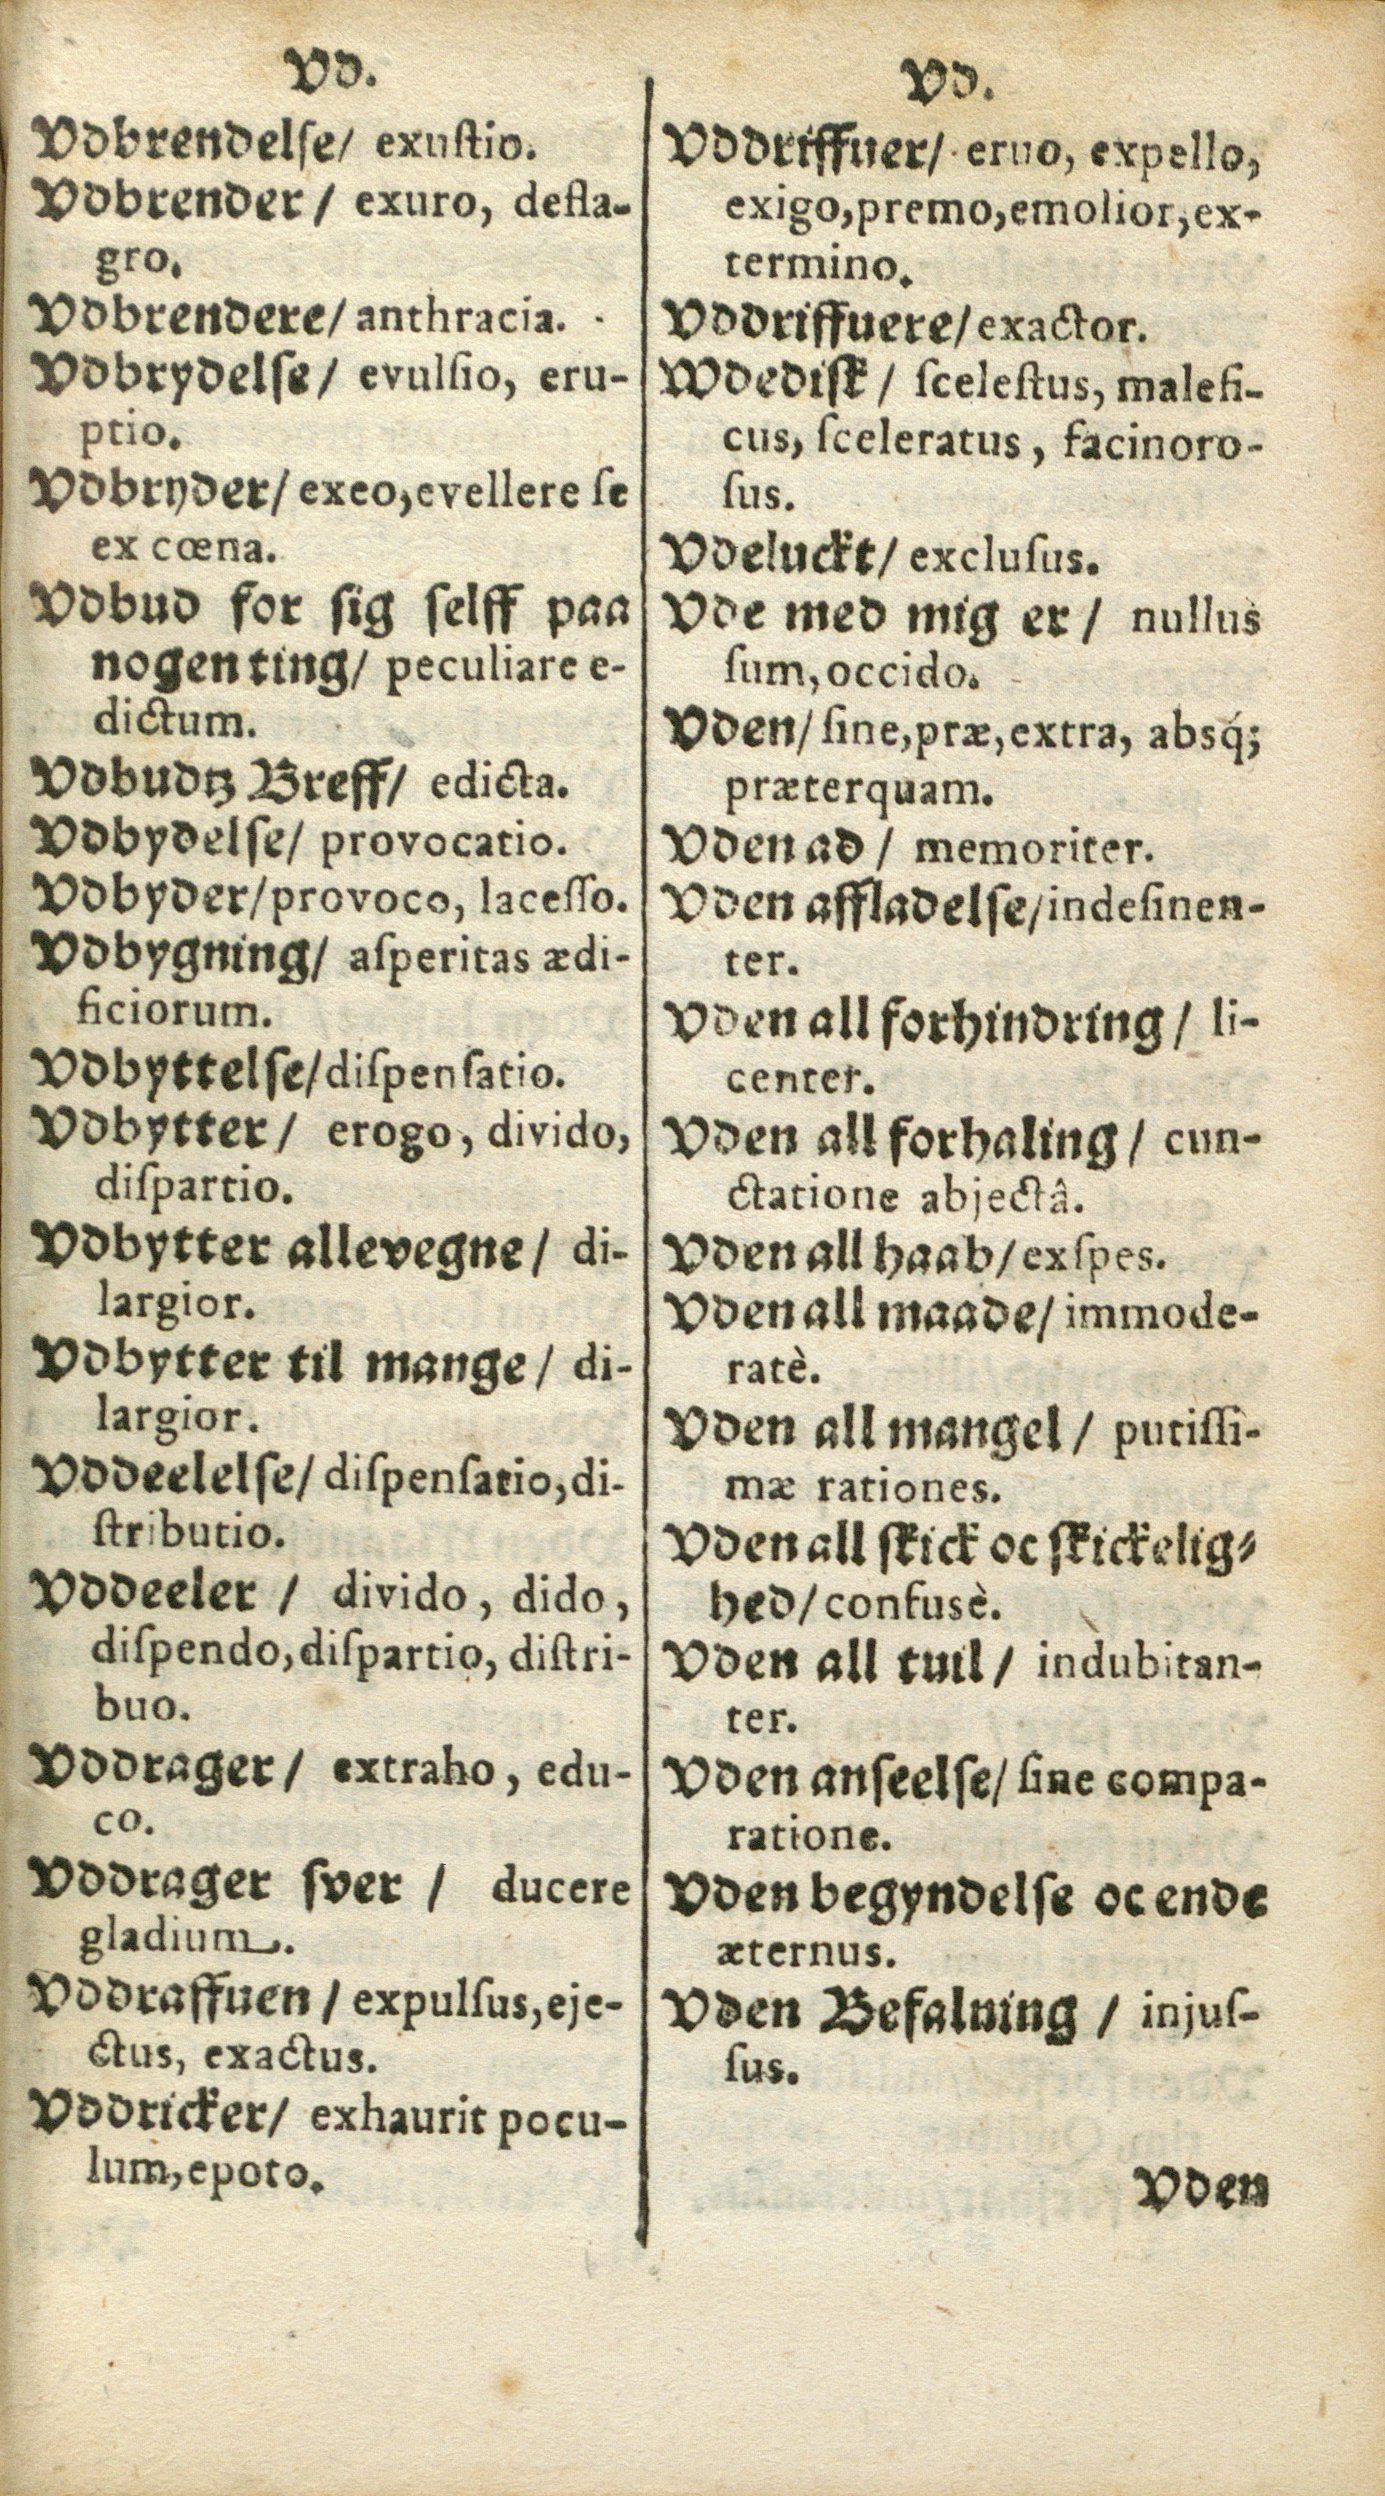 Vd.
Vdbrendelſe/ exuſtio.
Vdbrender / exuro, defla-
gro.
Vdbrendere/ anthracia.
Vdbrydelſe/ evulſio, eru-
ptio.
Vdbryder/ exeo, evellere ſe
ex cœna.
Vdbud for ſig ſelff paa
nogen ting/ peculiare e-
dictum.
Vdbudtz Breff/ edicta.
Vdbydelſe/ provocatio.
Vdbyder/provoco, laceſſo.
Vdbygning/ aſperitas ædi-
ficiorum.
Vdbyttelſe/diſpenſatio.
Vdbytter/ erogo, divido,
diſpartio.
Vdbytter allevegne/ di-
largior.
Vdbytter til mange/ di-
largior.
Vddeelelſe/ diſpenſatio, di-
ſtributio.
Vddeeler / divido, dido,
diſpendo, diſpartio, diſtri-
buo.
Vddrager/ extraho, edu-
co.
Vddrager ſver / ducere
gladium.
Vddraffuen/ expulſus, eje-
ctus, exactus.
Vddricker/ exhaurit pocu-
lum, epoto.
Vd.
Vddriffuer/ eruo, expello,
exigo, premo, emolior, ex-
termino.
Vddriffuere/exactor.
Wdediſk/ ſceleſtus, malefi-
cus, ſceleratus, facinoro-
ſus.
Vdeluckt/ excluſus.
Vde med mig er/ nullus
ſum, occido.
Vden/ ſine, præ, extra, absq́;
præterquam.
Vden ad / memoriter.
Vden affladelſe/indeſinen-
ter.
Vden all forhindring/ li-
center.
Vden all forhaling/ cun-
ctatione abjectâ.
Vden all haab/exſpes.
Vden all maade/ immode-
ratè.
Vden all mangel/ putiſſi-
mæ rationes.
Vden all ſkick oc ſkickelig-
hed/confusè.
Vden all tuil/ indubitan-
ter.
Vden anſeelſe/ ſine compa-
ratione.
Vden begyndelſe oc ende
æternus.
Vden Befalning / injuſ-
ſus.
Vden